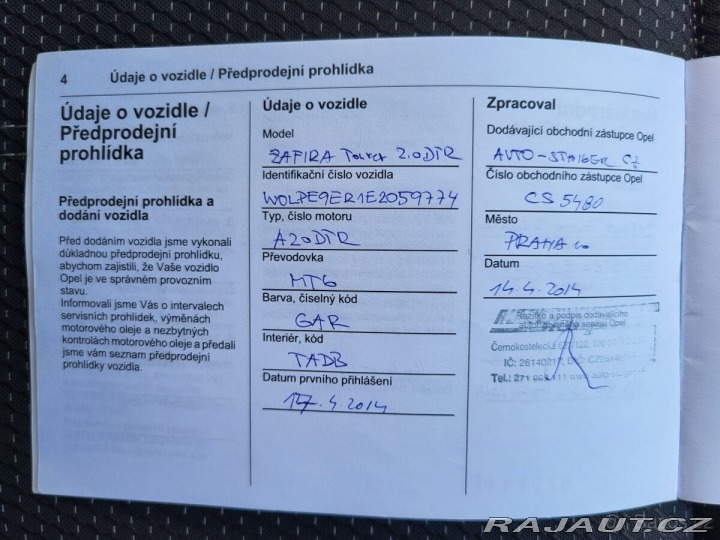 4 Údaje o vozidle / Předprodejní prohlídka
Údaje o vozidle /
Předprodejní
prohlídka
Předprodejní prohlídka a
dodání vozidla
Před dodáním vozidla jsme vykonali
důkladnou předprodejní prohlídku,
abychom zajistili, že Vaše vozidlo
Opel je ve správném provozním
stavu.
Informovali jsme Vás o intervalech
servisních prohlídek, výměnách
motorového oleje a nezbytných
kontrolách motorového oleje a předali
jsme vám seznam předprodejní
prohlídky vozidla.
Údaje o vozidle
Model
ZAFIRA Tourer 2.0DTR
Identifikační číslo vozidla
W0LPE9ER1E2059774
Typ, číslo motoru
A20DTR
Převodovka
MT6
Barva, číselný kód
GAR
Interiér, kód
TADB
Datum prvního přihlášení
17.4.2014
Zpracoval
Dodávající obchodní zástupce Opel
AUTO-STAIGER CZ
Číslo obchodního zástupce Opel
CS 5480
Město
PRAHA 10
Datum
14.4.2014
Razítko a podpis dodávajícího
autorizovaného servisu Opel
Černokostelecká
IČ: 2614021
Tel.: 271
RAJAUT.CZ